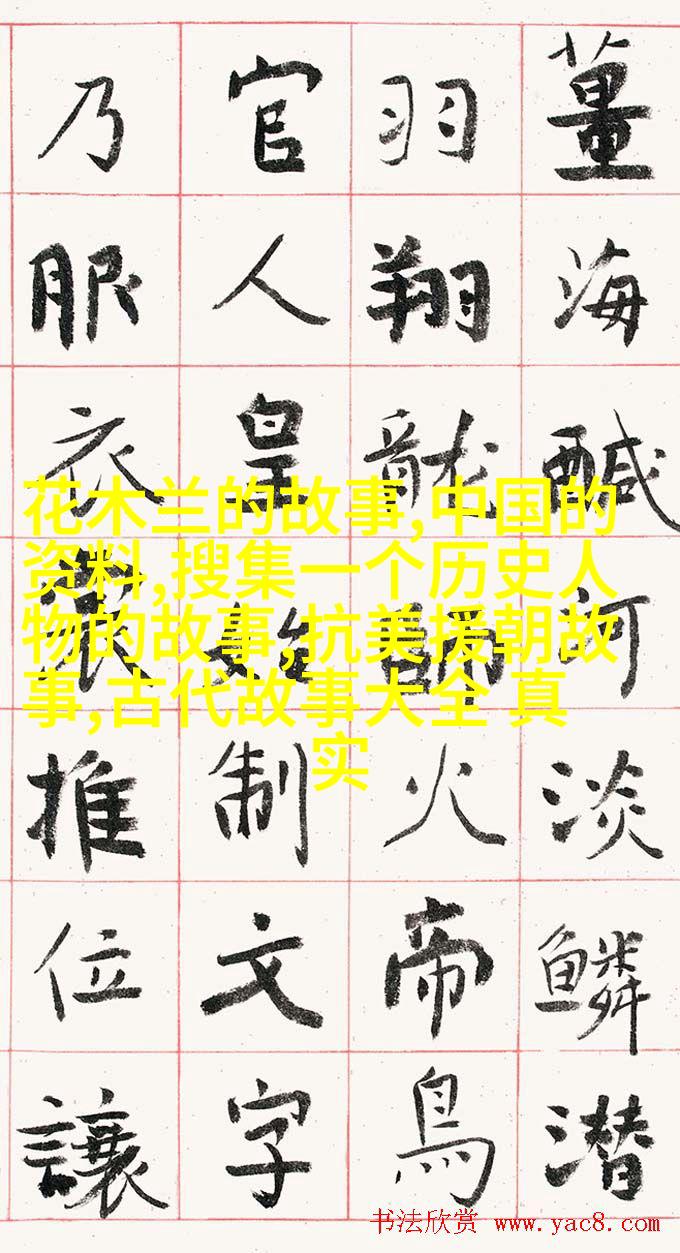 薑海鹹河淡鱗潛
羽翔龍師火帝鳥
官人皇始制文字
乃服衣裳推位讓
花木兰的故事,中国的
资料,搜集一个历史人
物的故事,抗美援朝故
事,古代故事大全 真
实
书法欣赏 www.yac8.com